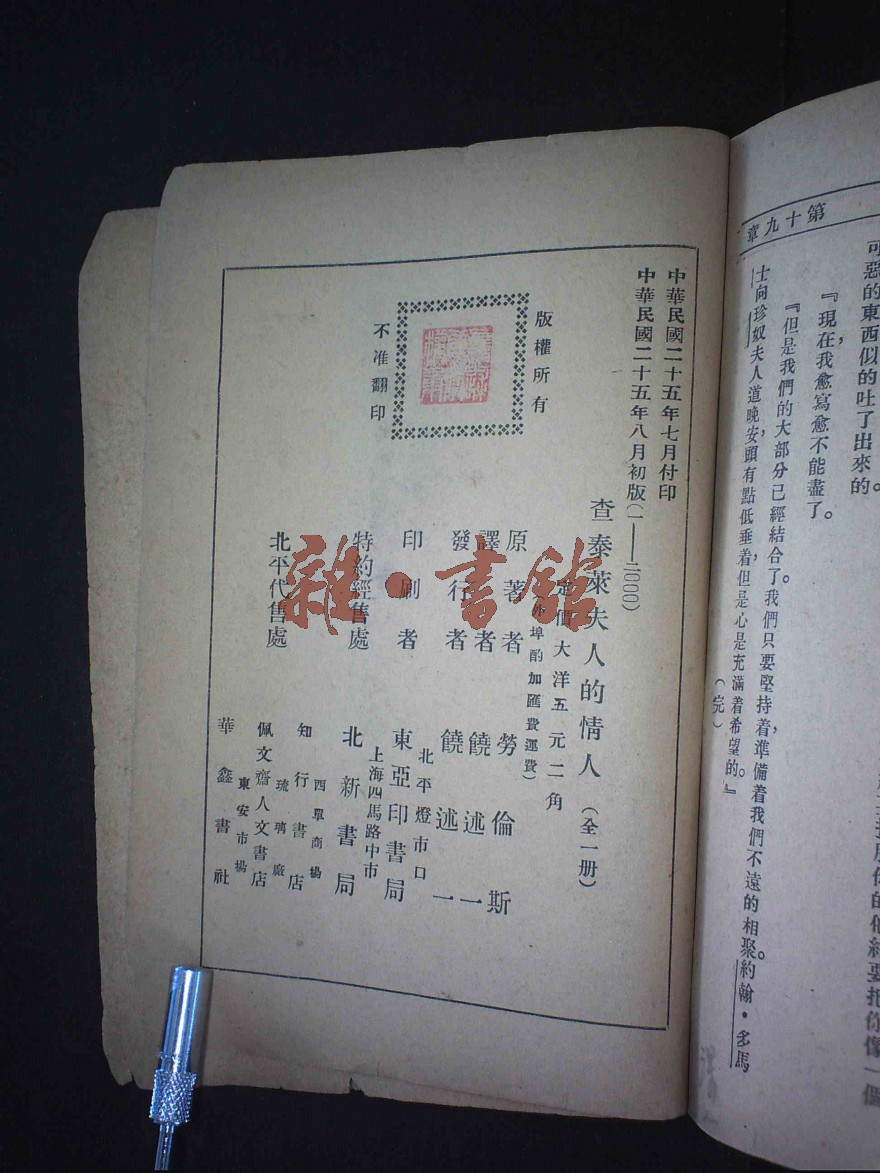 第十九章
可惡的東西似的吐了出來的。
『現在，我愈寫愈不能盡了。
『但是我們的大部分已經結合了。我們只要堅持着，準備着我們不遠的相聚。約翰·多馬
士向珍奴夫人道晚安，頭有點低垂着，但是心是充滿着希望的。』
（完）
中華民國二十五年七月付印
中華民國二十五年八月初版（一——二〇〇〇）
查泰萊夫人的情人（全一册）
定價大洋五元二角
（外埠酌加匯費運費）
原著者 勞倫斯
譯者 饒述一
發行者 饒述一
北平燈市口
印刷者 東亞印書局
上海四馬路中市
特約經售處 北新書局
西單商場
知行書店
琉璃廠
北平代售處 佩文齋人文書店
東安市場
華鑫書社
版權所有
不准翻印
雜·書館